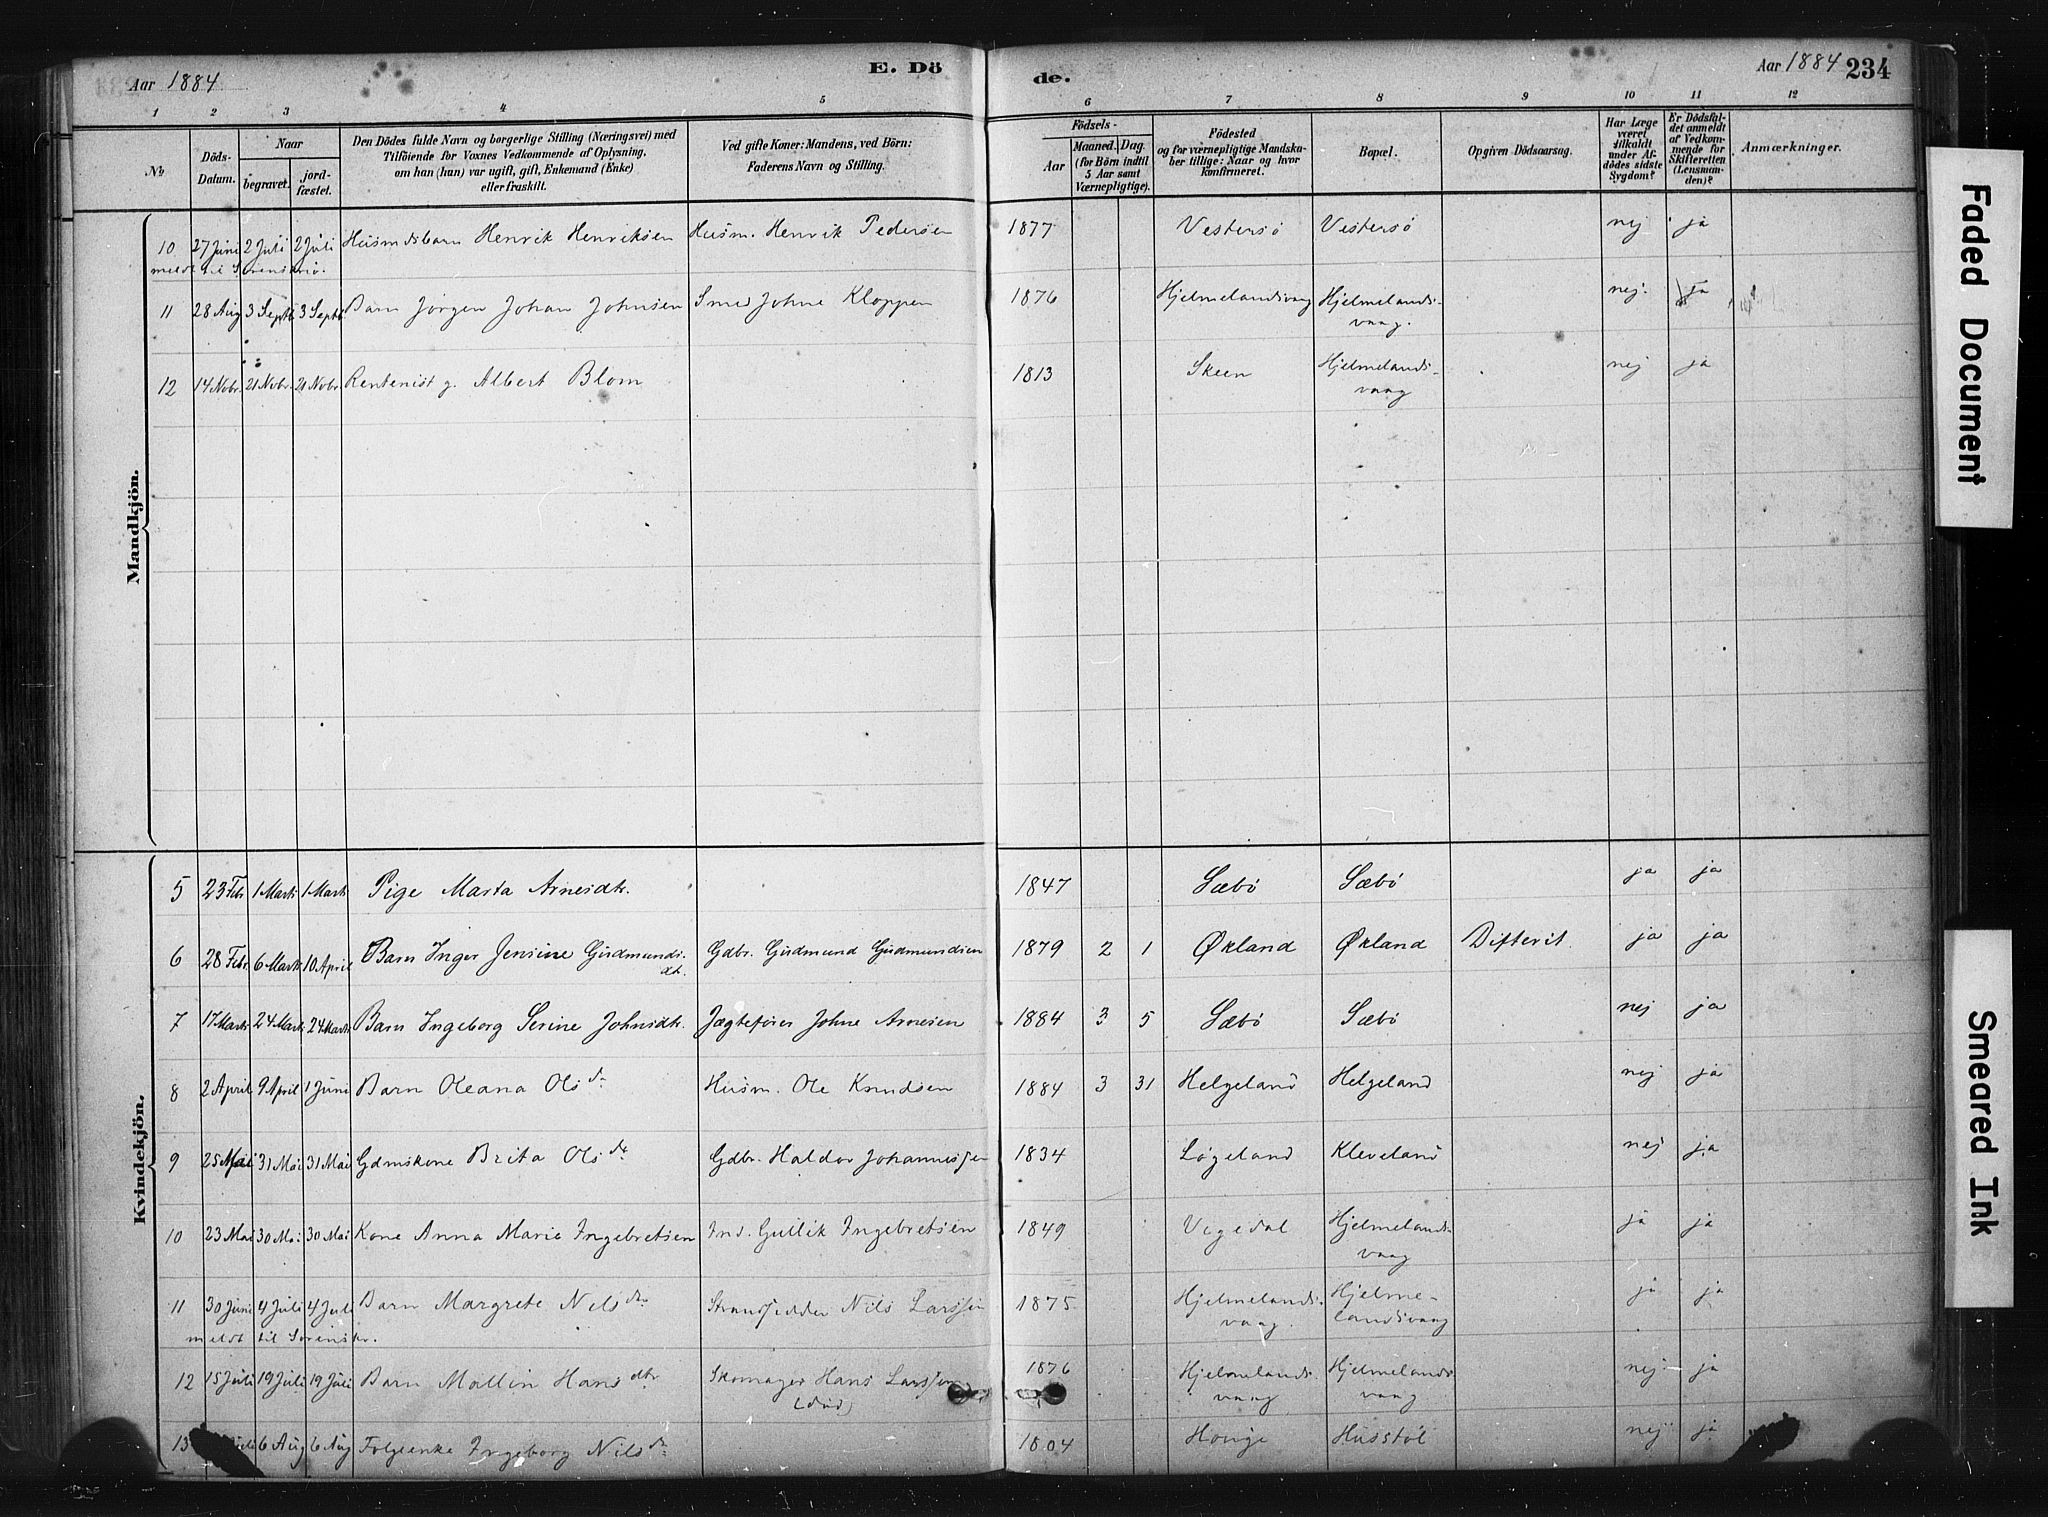 Aar 1884 E. Dö de. Aar 1884 234
1 2 3 4 5 6 7 8 9 10 11 12
No
Döds-Datum.
Naar
begravet.
jord-fæstet.
Den Dödes fulde Navn og borgerlige Stilling (Næringsvei) med
Tilföiende for Voxnes Vedkommende af Oplysning,
om han (hun) var ugift, gift, Enkemand (Enke)
eller fraskilt.
Ved gifte Koner: Mandens, ved Börn:
Faderens Navn og Stilling.
Födsels-
Aar
Maaned. Dag.
(for Börn indtil
5 Aar samt
Værnepligtige).
Födested
og for værnepligtige Mandska-
ber tillige: Naar og hvor
konfirmeret.
Bopæl.
Opgiven Dödsaarsag.
Har Læge
været
tilkaldt
under Af-
dödes sidste
Sygdom?
Er Dödsfal-
det anmeldt
af Vedkom-
mende for
Skifteretten
(Lensman-
den)?
Anmærkninger.
Mandkjön.
10 27 Juni 2 Juli 2 Juli Husmdsbarn Henrik Henriksen Husm. Henrik Pedersen 1877 Vestersö Vestersö nej ja
meldt til Sorenskriv.
11 28 Aug 3 Septb 3 Septb. Barn Jørgen Johan Johnsen Smed Johne Kloppen 1876 Hjelmelandsvaag Hjelmelands-
vaag. nej. ja
12 14 Nobr. 21 Nobr. 21 Nobr. Rentenist g. Albert Blom 1813 Skeen Hjelmelands-
vaag nej ja
Kvindekjön.
5 23 Febr 1 Marts 1 Marts Pige Marta Arnesdtr. 1847 Sæbö Sæbö ja ja
6 28 Febr. 6 Marts 10 April Barn Inger Jensine Gudmunds-
dt. Gdbr. Gudmund Gudmundsen 1879 2 1 Økland Økland Difterit. ja ja
7 17 Marts 24 Marts 24 Marts Barn Ingeborg Serine Johnsdtr. Jægtefører Johne Arnesen 1884 3 5 Sæbö Sæbö nej ja
8 2 April 9 April 1 Juni Barn Oleana Olsdr Husm. Ole Knudsen 1884 3 31 Helgeland Helgeland nej ja
9 25 Mai 31 Mai 31 Mai Gdmskone Brita Olsdtr Gdbr. Haldor Johannessen 1834 Løgeland Kleveland nej ja
10 23 Mai 30 Mai 30 Mai Kone Anna Marie Ingebretsen Ind. Gullik Ingebretsen 1849 Vigedal Hjelmelands-
vaag ja ja
11 30 Juni 4 Juli 4 Juli Barn Margrete Nilsdtr Strandsidder Nils Larssen 1875 Hjelmelands-
vaag. Hjelme-
landsvaag ja ja
meldt til Sorenskr.
12 15 Juli 19 Juli 19 Juli Barn Mallin Hansdtr Skomager Hans Larssen
(död) 1876 Hjelmelands-
vaag Hjelmelands-
vaag nej ja
13 6 Aug 6 Aug Folgeenke Ingeborg Nilsdr 1804 Houge Husstöl nej ja
Faded Document
Smeared Ink